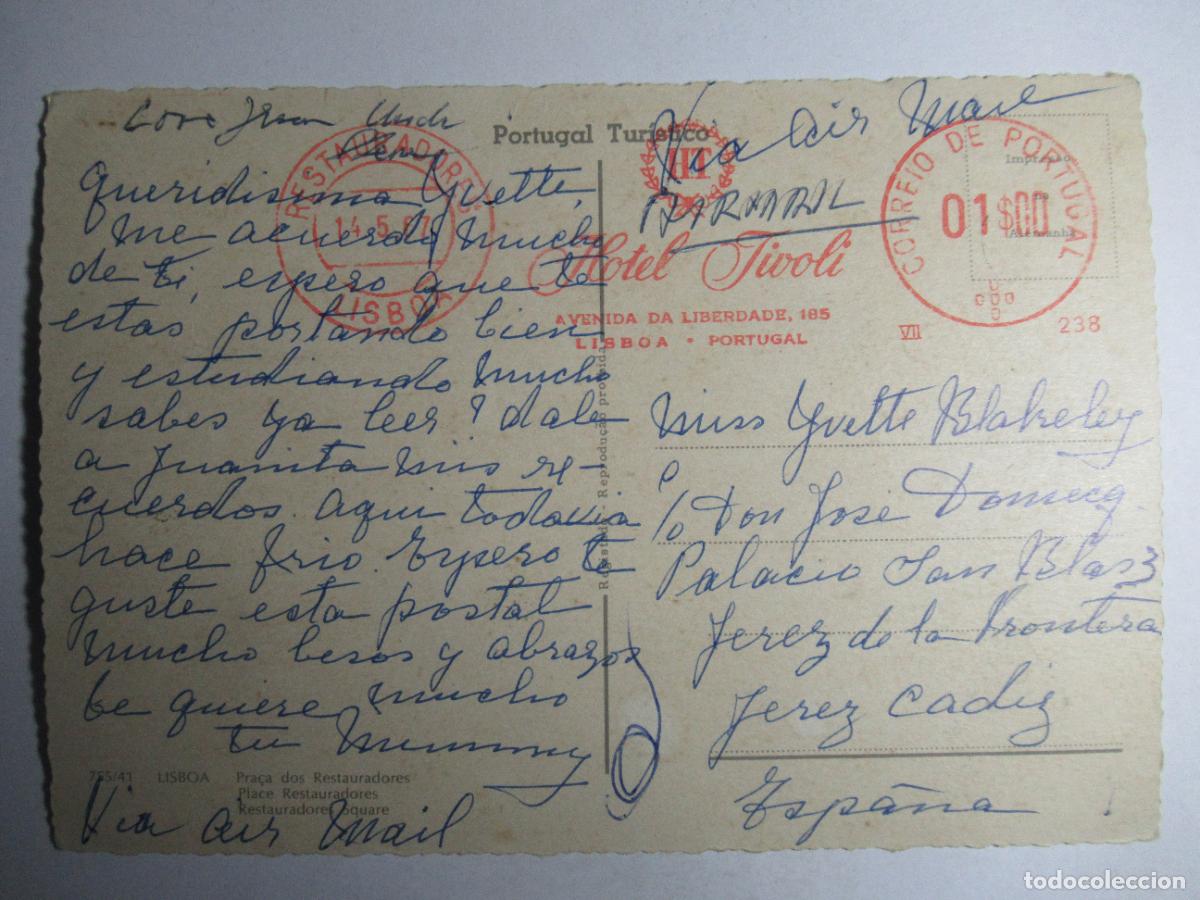 Love from Uncle
Portugal Turistico
Queridisima Yvette,
me acuerdo mucho
de ti, espero que te
estas portando bien
y estudiando mucho
sabes ya leer? dale
a Juanita mis re-
cuerdos. Aqui todavia
hace frio. Espero te
guste esta postal
mucho besos y abrazos
te quiere mucho
tu Mummy
755/41 LISBOA Praça dos Restauradores
Place Restauradores
Restauradores Square
Via Air Mail
RESTAURADORES
14.5.67
LISBOA
HT
Hotel Tivoli
AVENIDA DA LIBERDADE, 185
LISBOA • PORTUGAL
Via Air Mail
CORREIO DE PORTUGAL
01$00
VII
238
Impressão
na
Alemanha
Reprodução proibida
Miss Yvette Blakeley
c/o Don Jose Domecq
Palacio San Blas 3
Jerez de la Frontera
Jerez Cadiz
España
todocoleccion